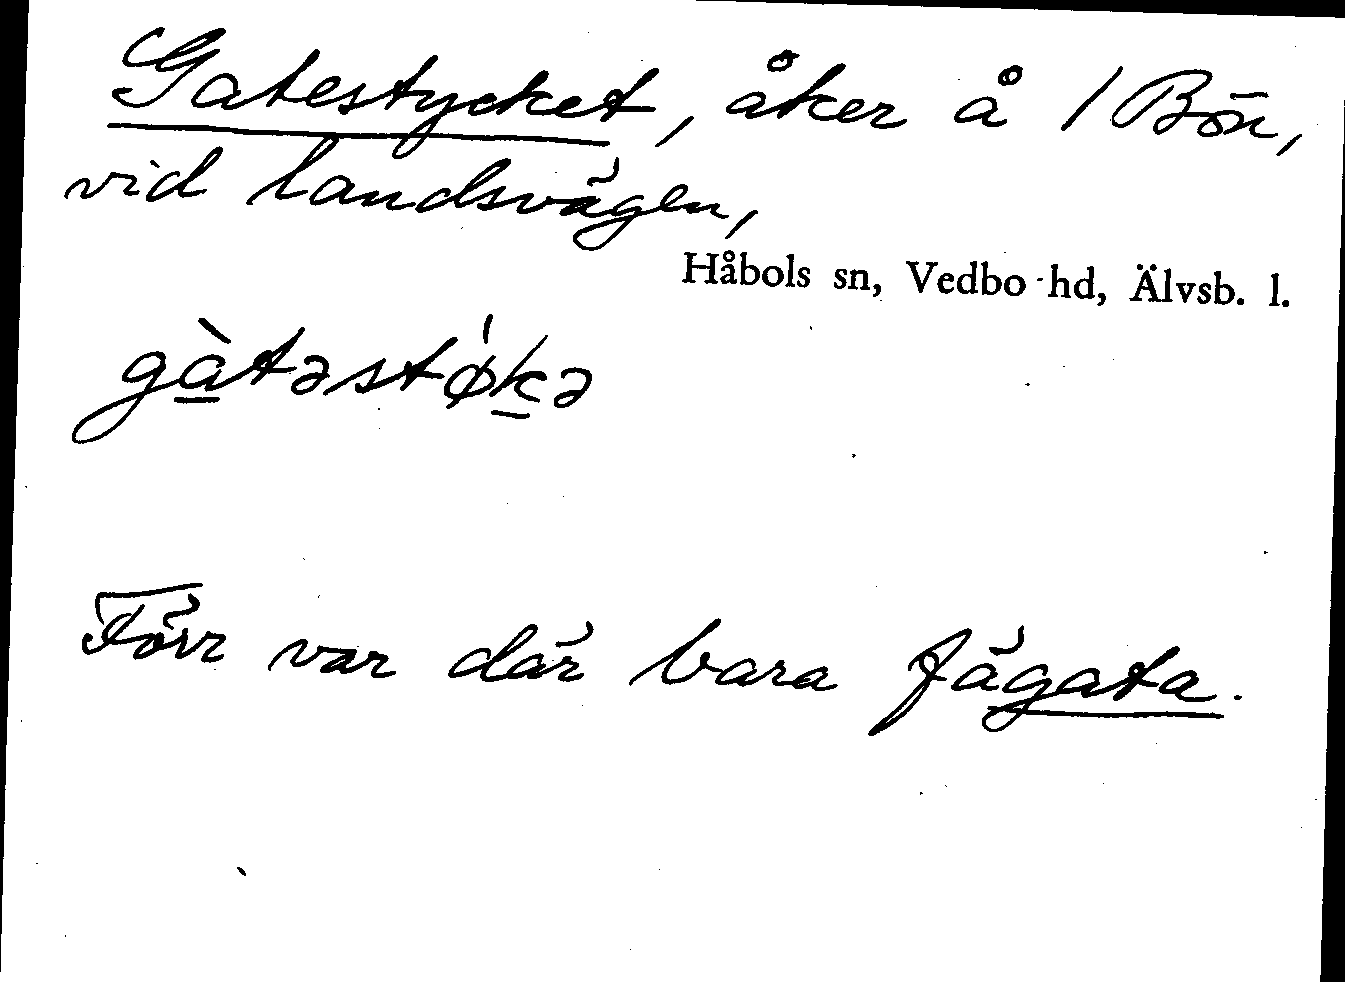 Gatestycket, åker å 1 Bön,
vid landsvägen,
Håbols sn, Vedbo hd, Älvsb. l.
gàtəstǿkə
Förr var där bara fägata.